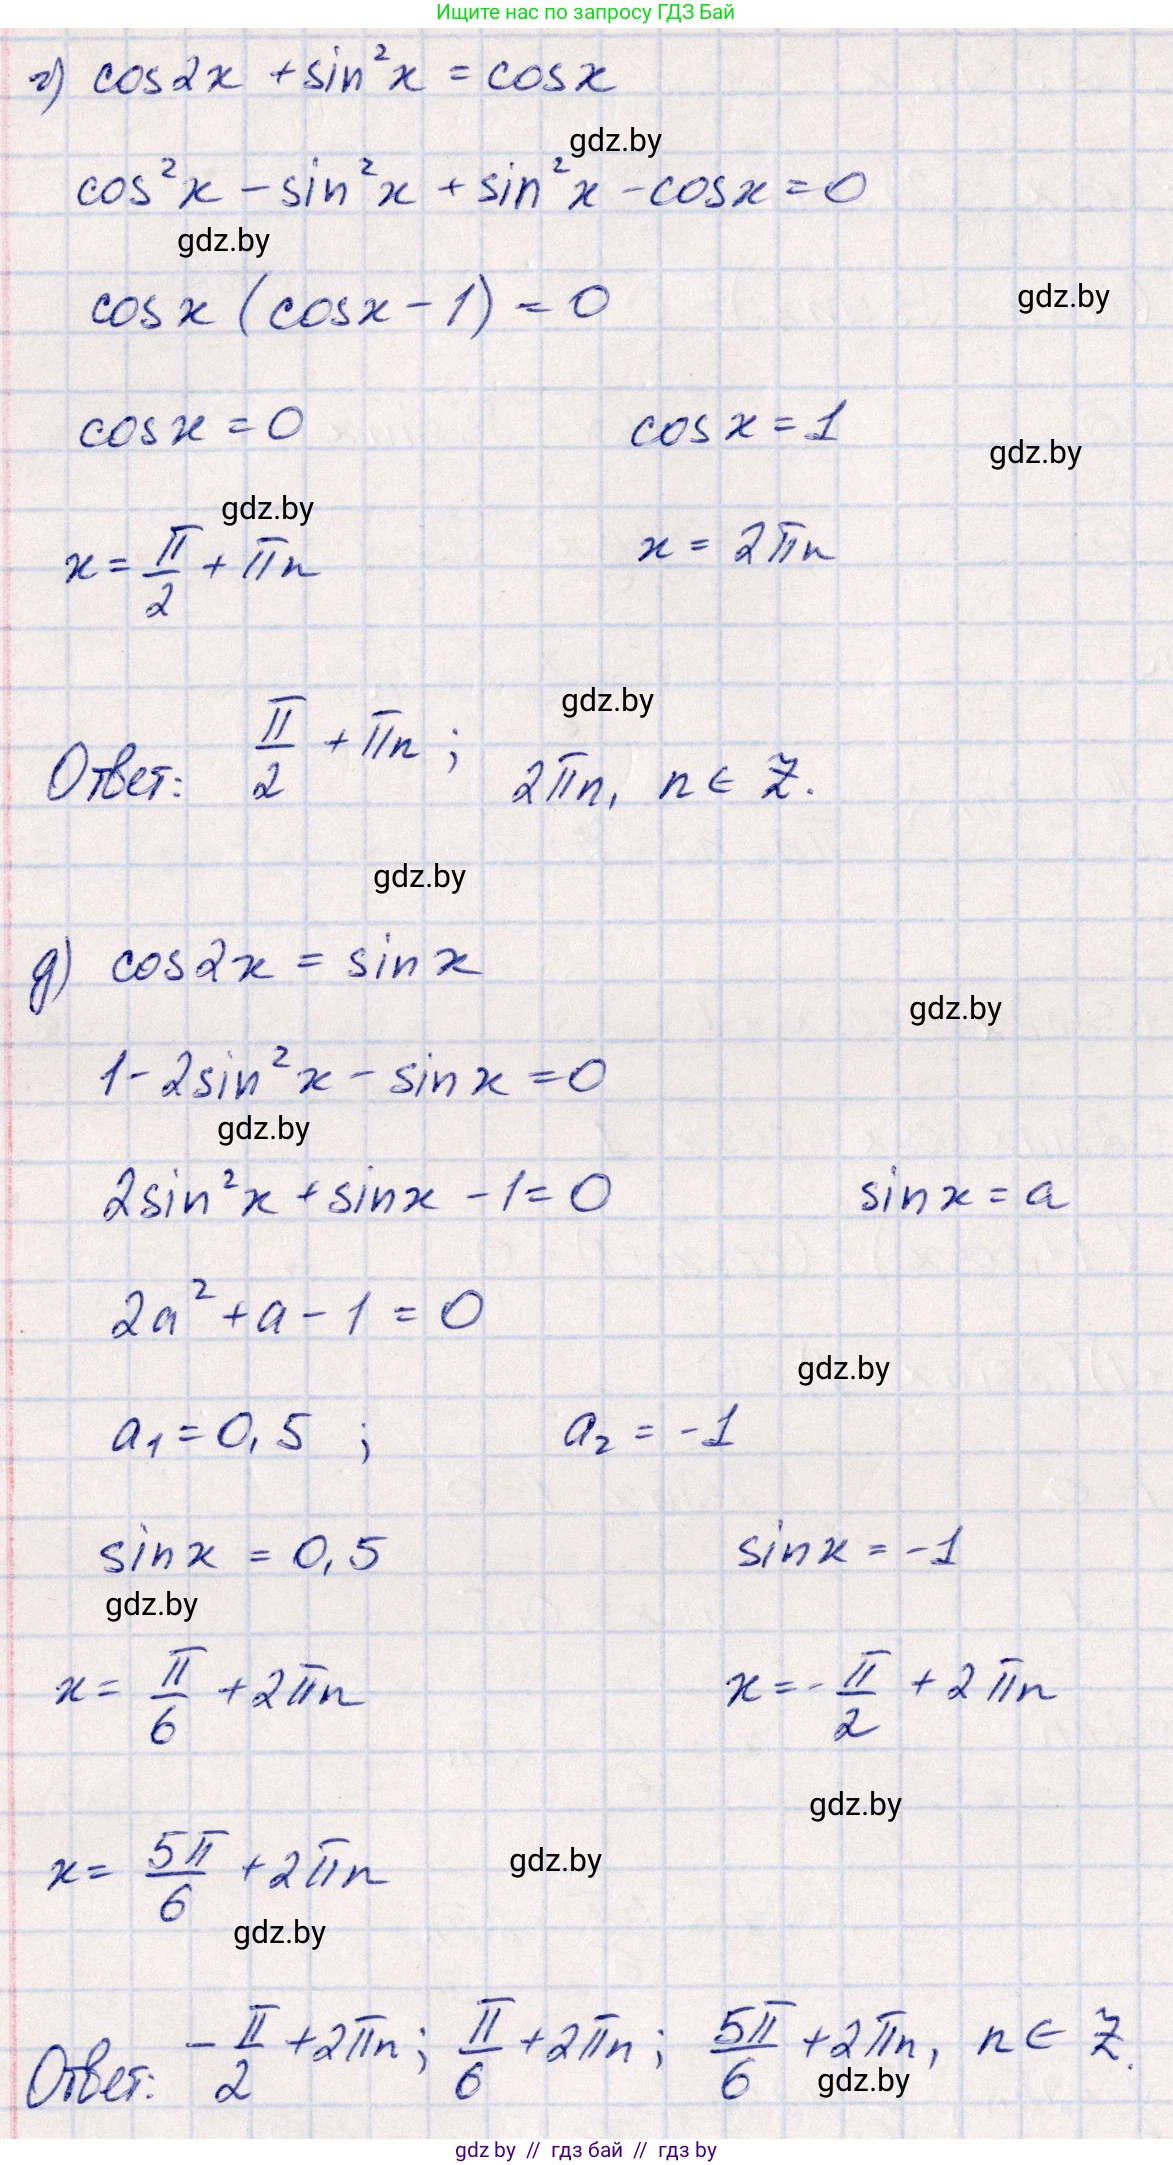 Ищите нас по запросу ГДЗ Бай
г) cos2x + sin²x = cosx
gdz.by
cos²x - sin²x + sin²x - cosx = 0
gdz.by
cosx (cosx - 1) = 0
gdz.by
cosx = 0 cosx = 1
gdz.by
gdz.by
x = π/2 + πn x = 2πn
gdz.by
Ответ: π/2 + πn; 2πn, n ∈ Z.
gdz.by
д) cos2x = sinx
gdz.by
1 - 2sin²x - sinx = 0
gdz.by
2sin²x + sinx - 1 = 0 sinx = a
2a² + a - 1 = 0
gdz.by
a₁ = 0,5 ; a₂ = -1
sinx = 0,5 sinx = -1
gdz.by
x = π/6 + 2πn x = -π/2 + 2πn
gdz.by
x = 5π/6 + 2πn
gdz.by
gdz.by
Ответ: -π/2 + 2πn; π/6 + 2πn; 5π/6 + 2πn, n ∈ Z.
gdz.by
gdz by // гдз бай // гдз by